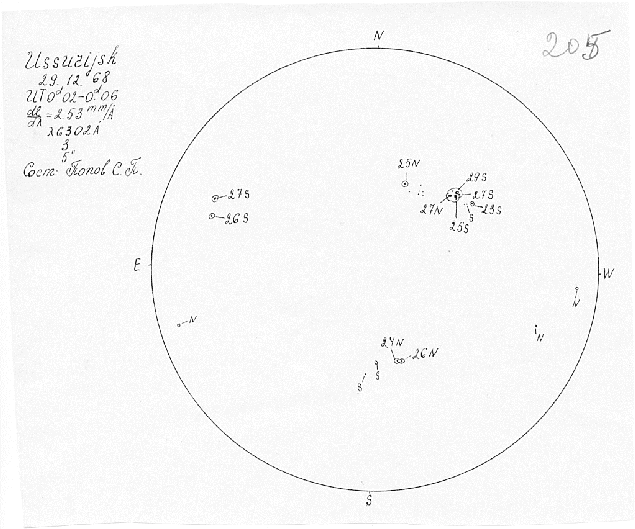 Ussurijsk
29 12 68
UT 0ᵈ.02-0ᵈ.06
dl/dλ = 2.53 mm/Å
26302Å
3
5"
Сост Попов С.П.
205
N
25N
29S
27S
27N
23S
S
28S
27S
26S
E
W
N
N
N
24N
26N
S
S
S